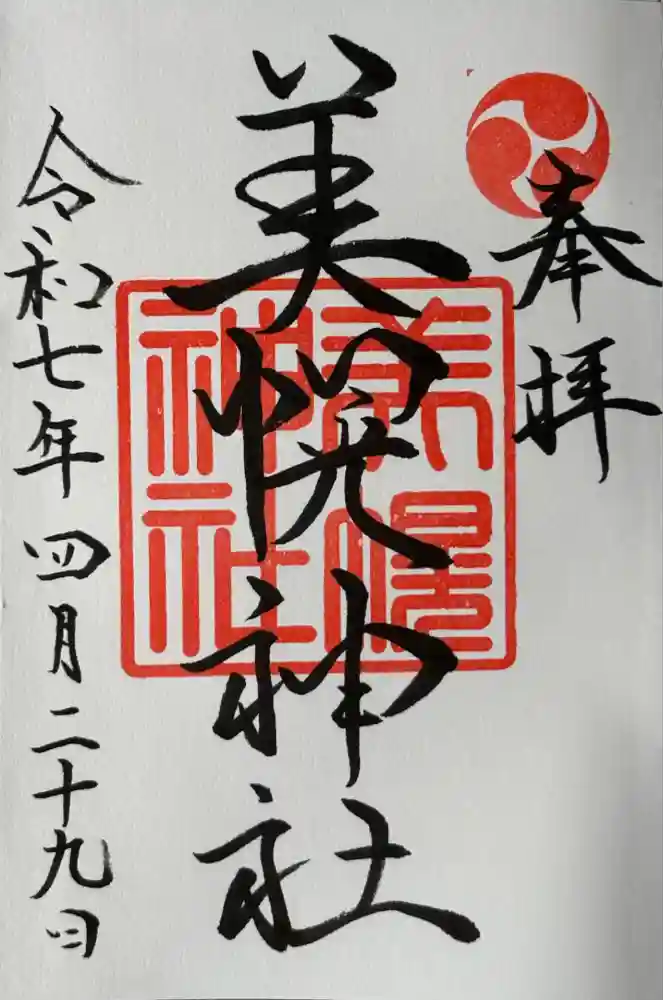 奉拝
美幌神社
美幌神社
令和七年四月二十九日